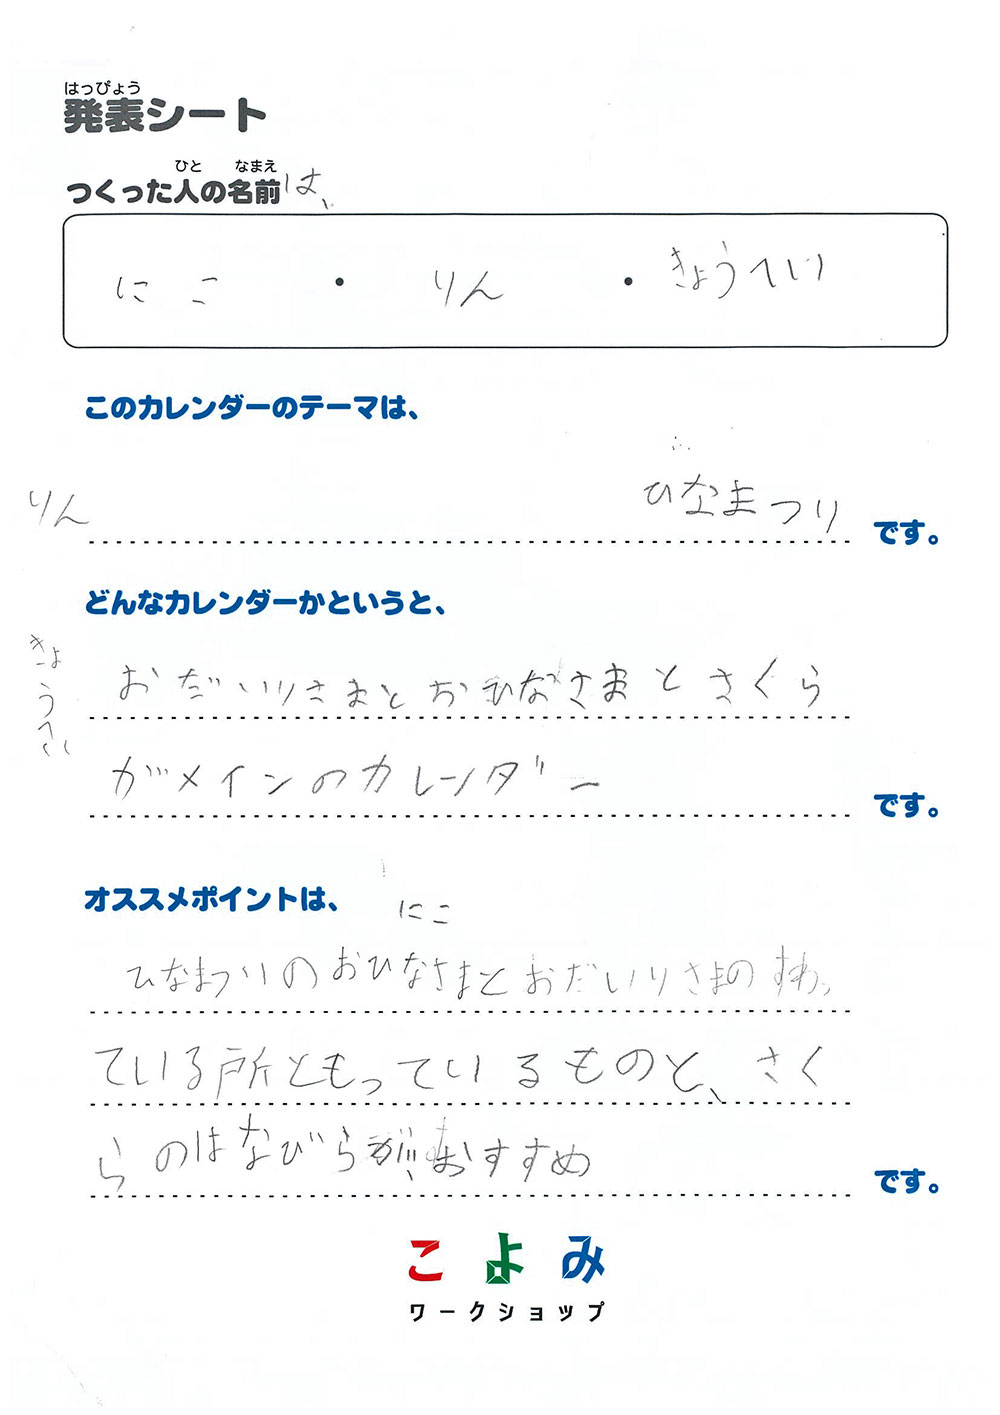 はっぴょう
発表シート
ひと なまえ
つくった人の名前は、
にこ ・ りん ・ きょうへい
このカレンダーのテーマは、
りん ひなまつり です。
どんなカレンダーかというと、
きょうへい
おだいりさまとおひなさまとさくら
がメインのカレンダー です。
オススメポイントは、
にこ
ひなまつりのおひなさまとおだいりさまのすわっ
ている所ともっているものと、さく
らのはなびらが、おすすめ です。
こよみ
ワークショップ